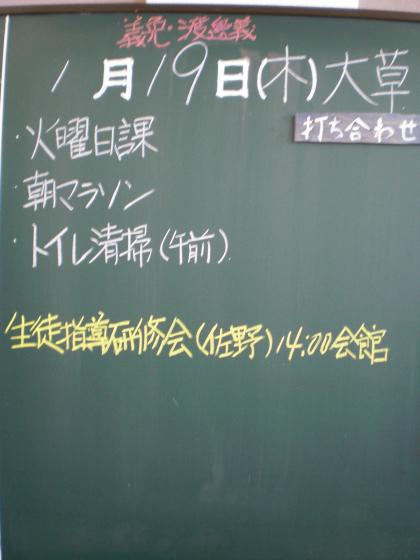 1月19日(木)大草
打ち合わせ
・火曜日課
・朝マラソン
・トイレ清掃(午前)
生徒指導研修会(佐野)14:00会館